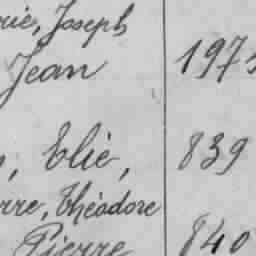 Joseph
Jean 197
Elie, 839
Théodore
Pierre 840